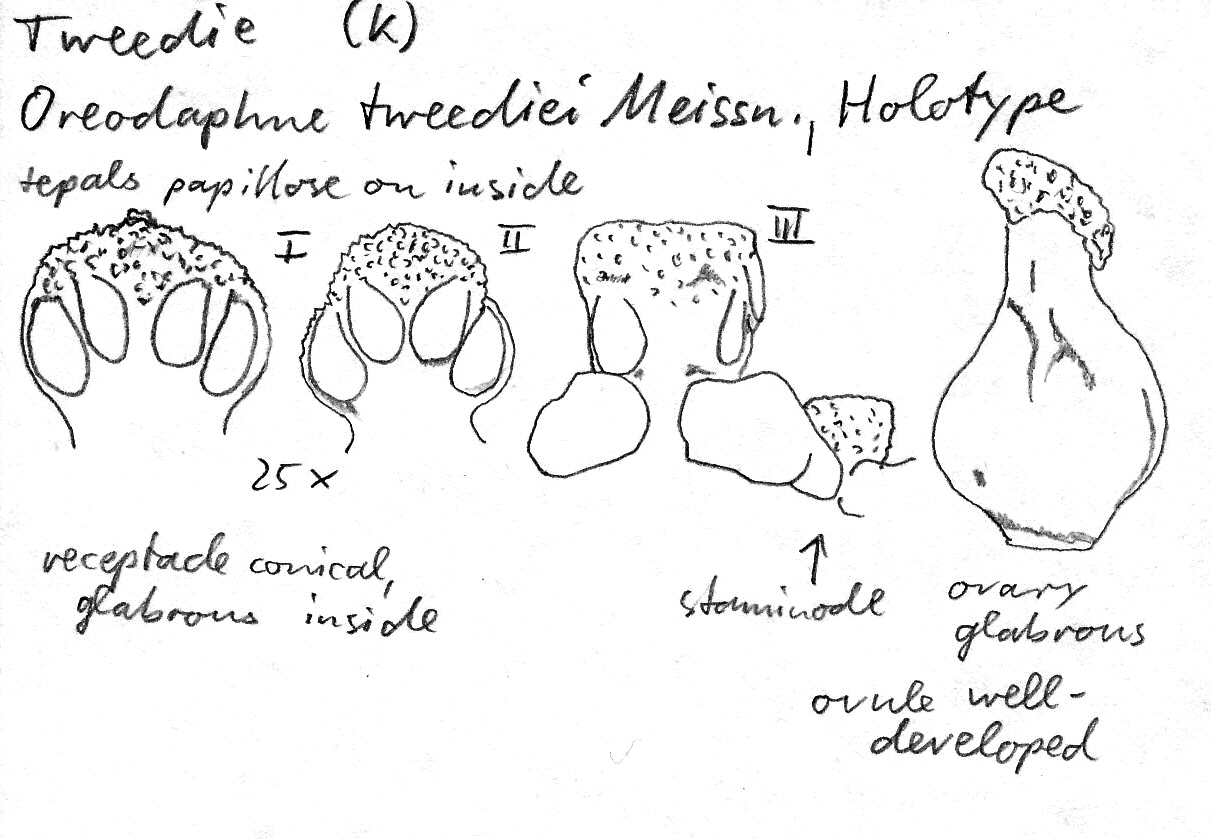 Tweedie (K)
Oreodaphne tweediei Meissn., Holotype
tepals papillose on inside
I II III
25 x
receptacle conical,
glabrous inside
staminode
ovary
glabrous
ovule well-
developed